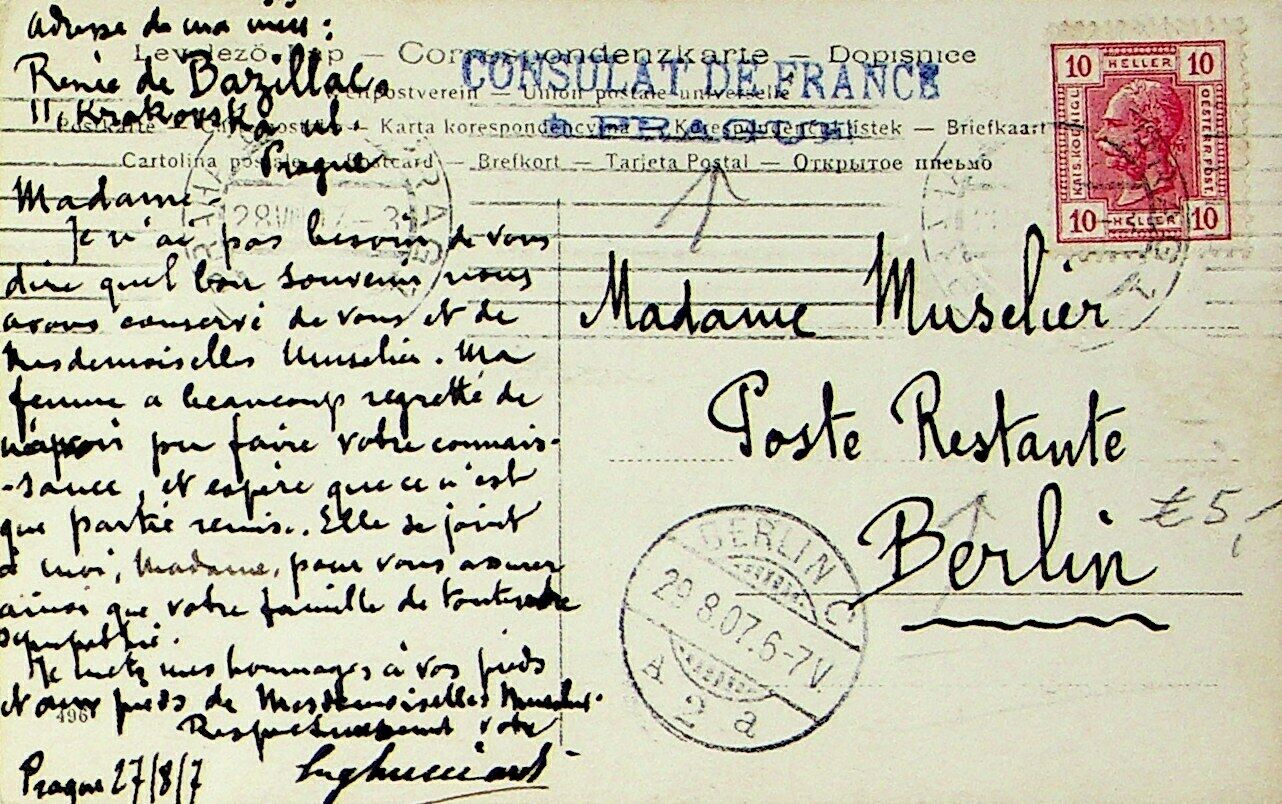 adresse de ma nièce :
Renée de Bazillac
11, Krakovska ul.
Prague
Levelező-Lap — Correspondenzkarte — Dopisnice
Weltpostverein — Union postale universelle
CONSULAT DE FRANCE
À PRAGUE
Postkarte — Carte postale — Karta korespondencyjna — Korespondenční lístek — Briefkaart
Cartolina postale — Postcard — Brefkort — Tarjeta Postal — Открытое письмо
10 HELLER 10
KAIS. KOENIGL. OESTERR. POST.
10 HELLER 10
Madame
Je n'ai pas besoin de vous
dire quel bon souvenir nous
avons conservé de vous et de
Mesdemoiselles Muselier. Ma
femme a beaucoup regretté de
n'avoir pu faire votre connais-
-sance, et espère que ce n'est
que partie remise. Elle se joint
à moi, Madame, pour vous assurer
ainsi que votre famille de toute notre
sympathie.
Je mets mes hommages à vos pieds
et aux pieds de Mesdemoiselles Muselier.
Respectueusement votre
Prague 27/8/7
496
Madame Muselier
Poste Restante
Berlin
£5,-
BERLIN C
29.8.07.6-7V.
A 2 a